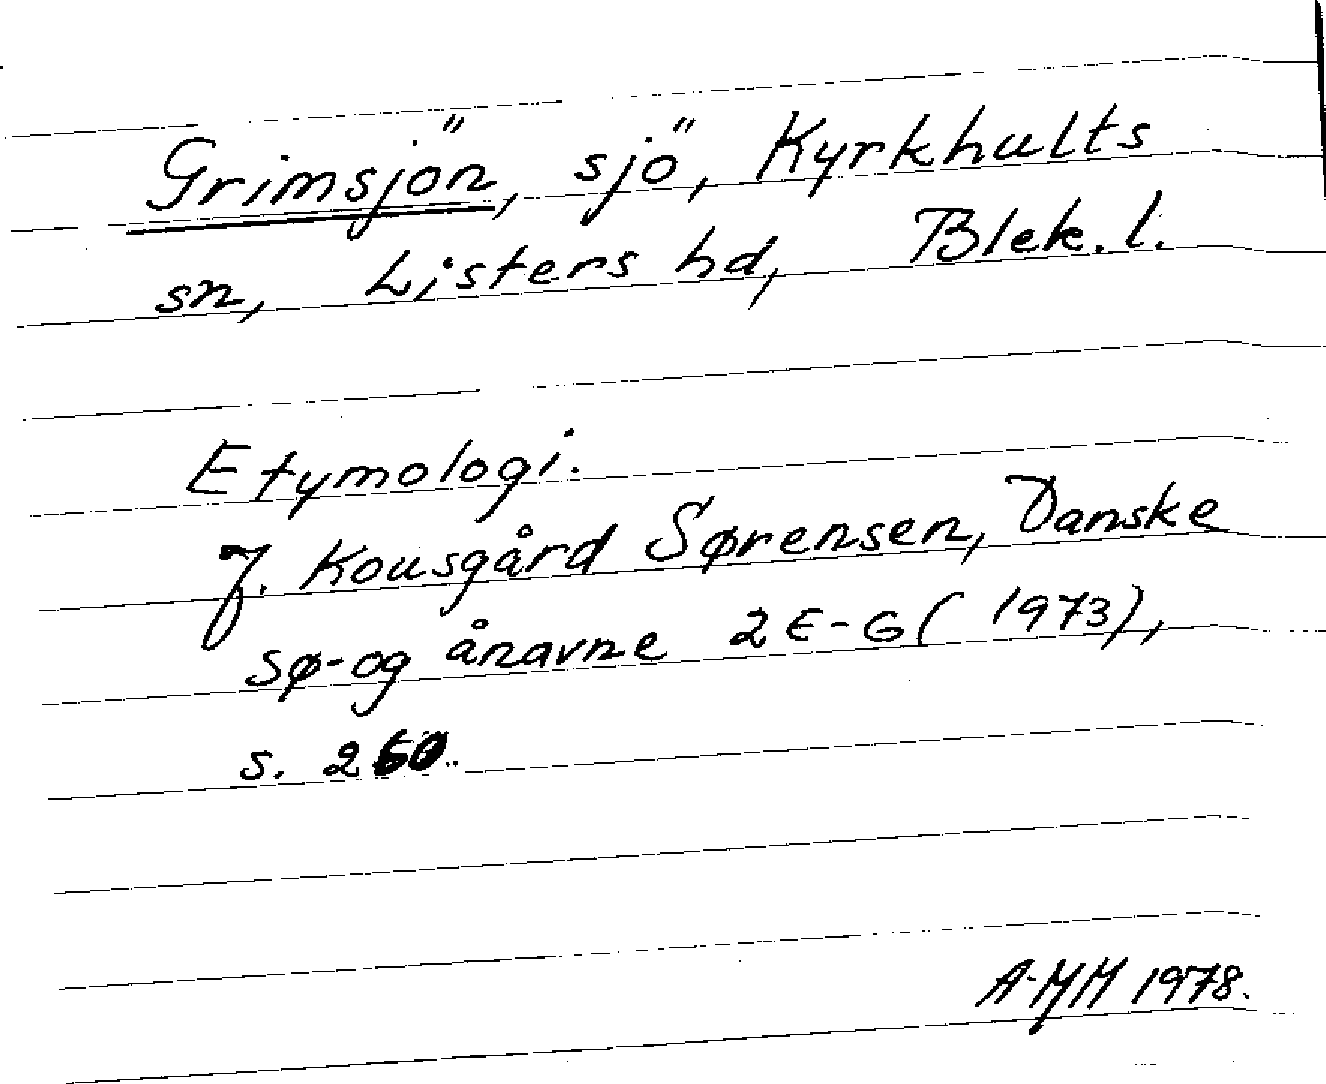 Grimsjön, sjö, Kyrkhults
sn, Listers hd, Blek. l.
Etymologi.
J. Kousgård Sørensen, Danske
sø- og ånavne 2 E-G (1973),
s. 260.
A-MM 1978.